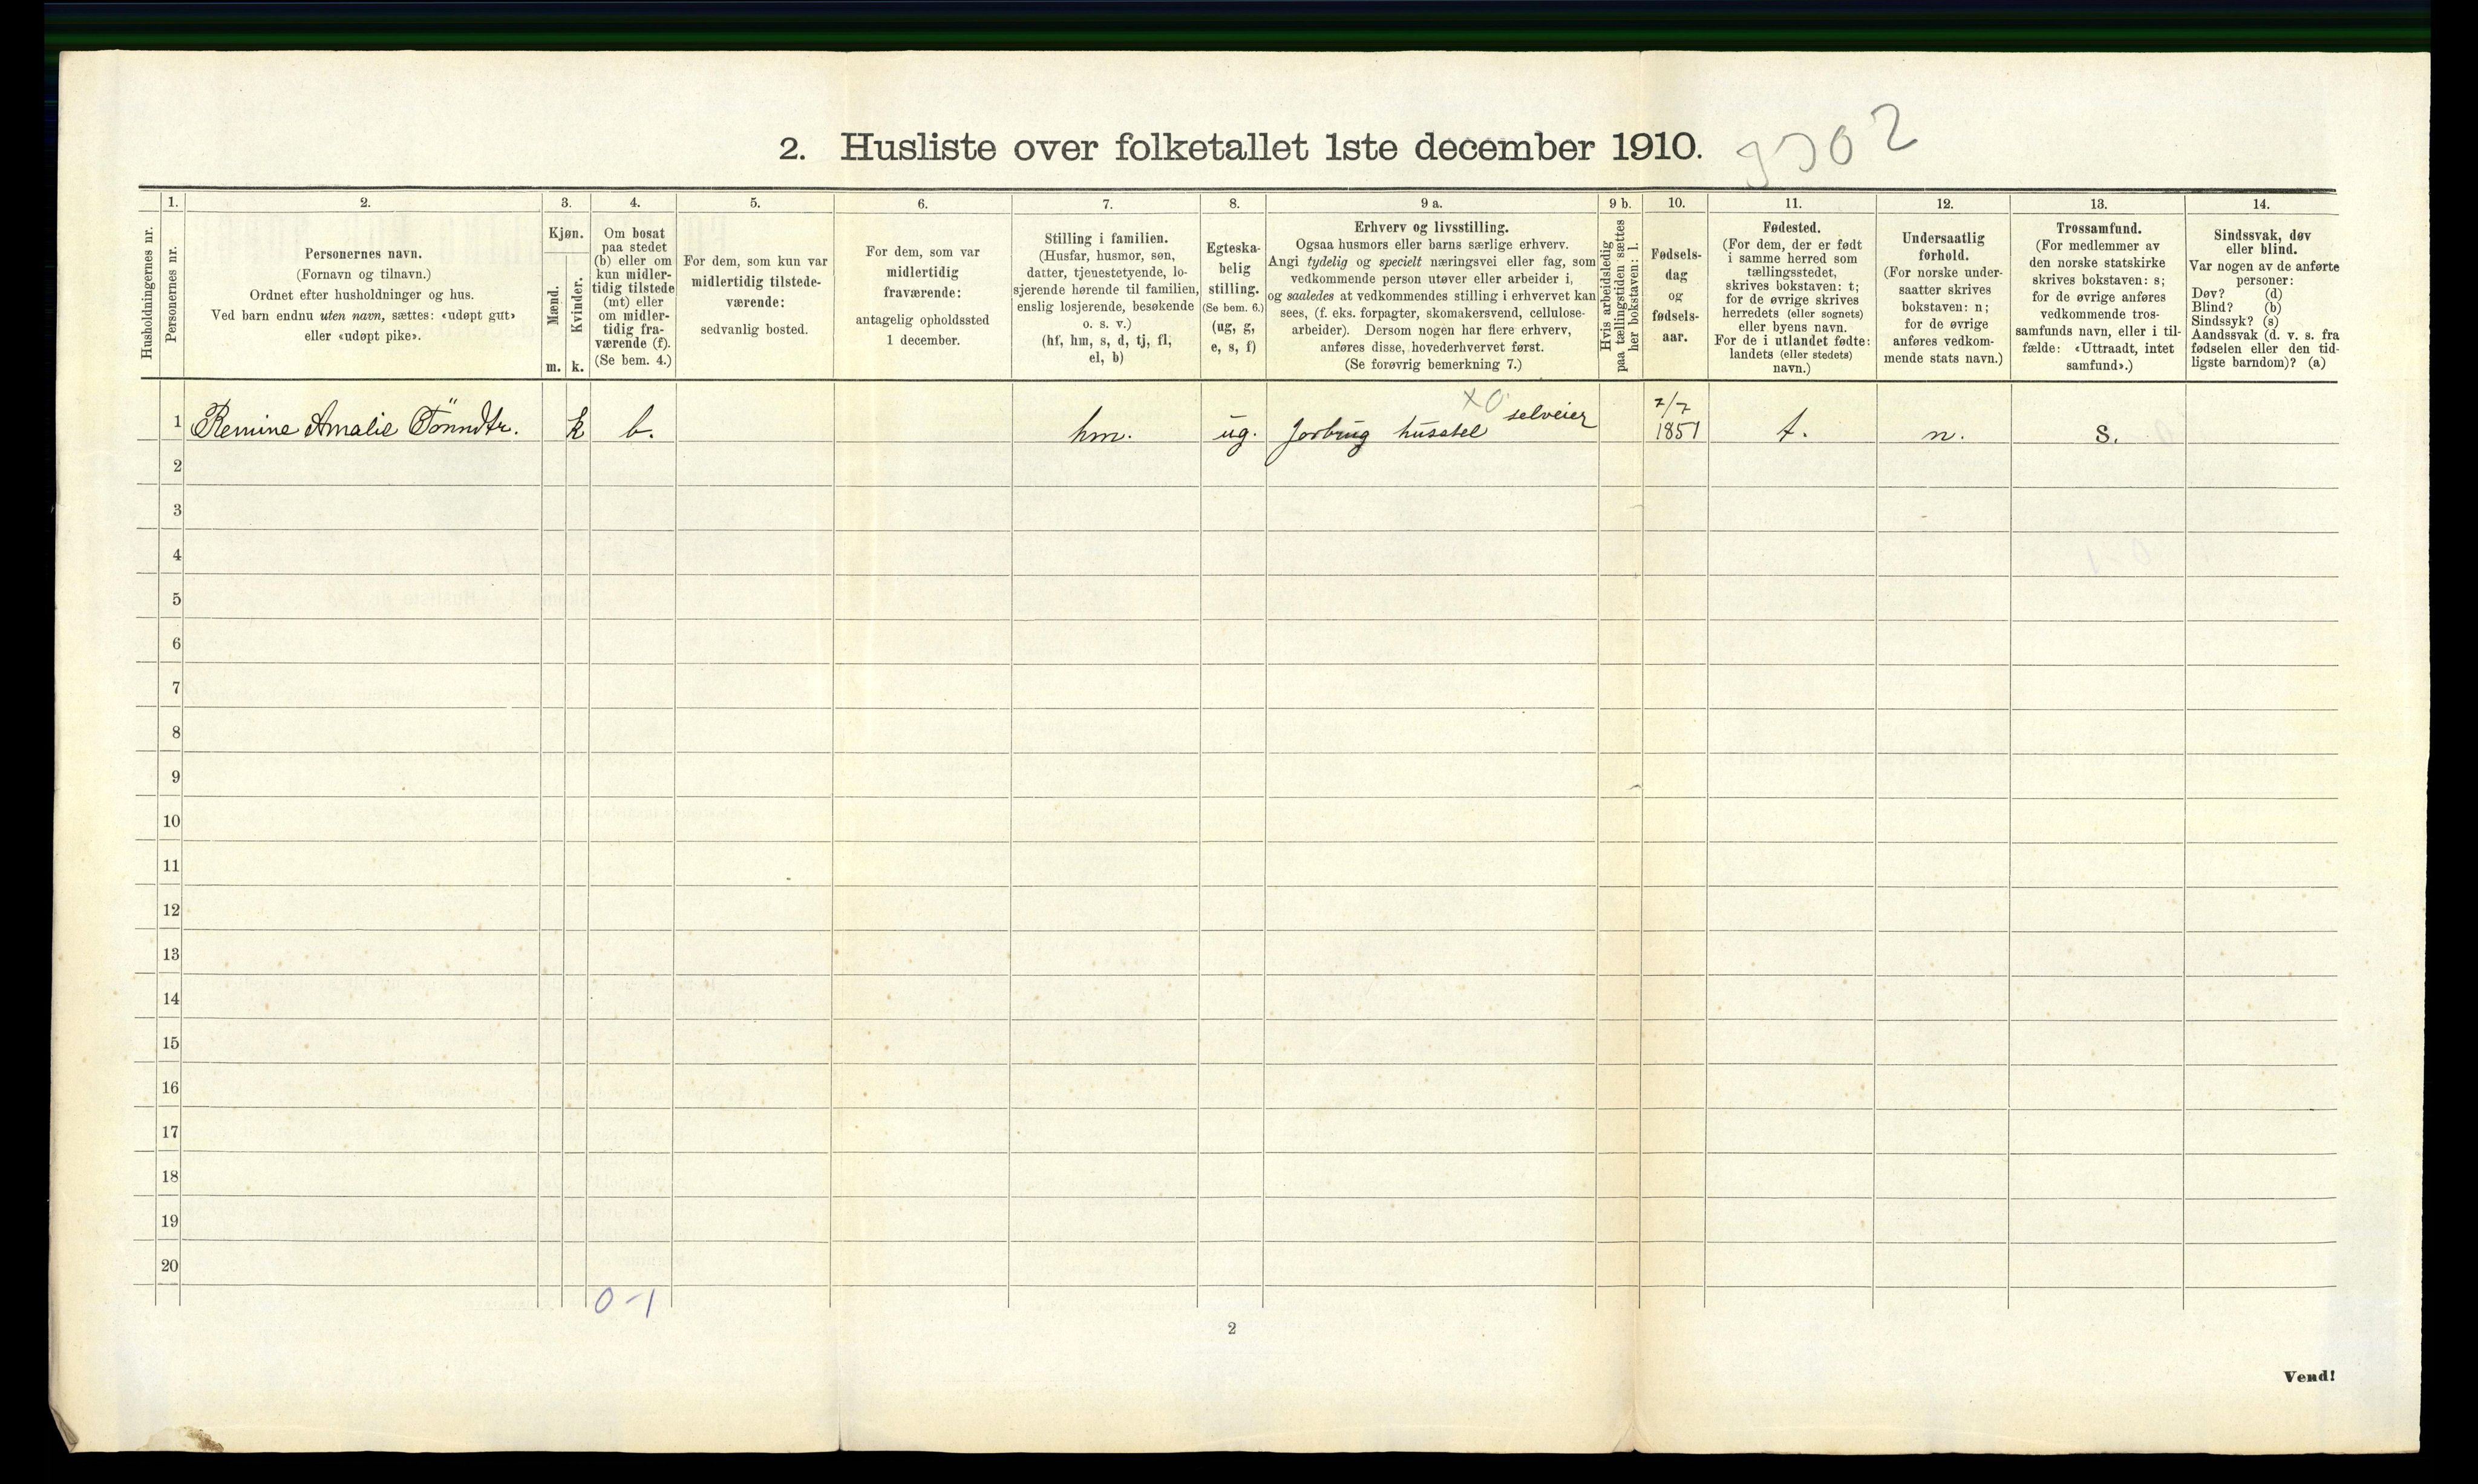 2. Husliste over folketallet 1ste december 1910.
Husholdningernes nr.
1.
Personernes nr.
2.
Personernes navn.
(Fornavn og tilnavn.)
Ordnet efter husholdninger og hus.
Ved barn endnu uten navn, sættes: «udøpt gut»
eller «udøpt pike».
3.
Kjøn.
Mænd.
m.
Kvinder.
k.
4.
Om bosat
paa stedet
(b) eller om
kun midler-
tidig tilstede
(mt) eller
om midler-
tidig fra-
værende (f).
(Se bem. 4.)
5.
For dem, som kun var
midlertidig tilstede-
værende:
sedvanlig bosted.
6.
For dem, som var
midlertidig
fraværende:
antagelig opholdssted
1 december.
7.
Stilling i familien.
(Husfar, husmor, søn,
datter, tjenestetyende, lo-
sjerende hørende til familien,
enslig losjerende, besøkende
o. s. v.)
(hf, hm, s, d, tj, fl,
el, b)
8.
Egteska-
belig
stilling.
(Se bem. 6.)
(ug, g,
e, s, f)
9 a.
Erhverv og livsstilling.
Ogsaa husmors eller barns særlige erhverv.
Angi tydelig og specielt næringsvei eller fag, som
vedkommende person utøver eller arbeider i,
og saaledes at vedkommendes stilling i erhvervet kan
sees, (f. eks. forpagter, skomakersvend, cellulose-
arbeider). Dersom nogen har flere erhverv,
anføres disse, hovederhvervet først.
(Se forøvrig bemerkning 7.)
9 b.
Hvis arbeidsledig
paa tællingstiden sættes
her bokstaven: l.
10.
Fødsels-
dag
og
fødsels-
aar.
11.
Fødested.
(For dem, der er født
i samme herred som
tællingsstedet,
skrives bokstaven: t;
for de øvrige skrives
herredets (eller sognets)
eller byens navn.
For de i utlandet fødte:
landets (eller stedets)
navn.)
12.
Undersaatlig
forhold.
(For norske under-
saatter skrives
bokstaven: n;
for de øvrige
anføres vedkom-
mende stats navn.)
13.
Trossamfund.
(For medlemmer av
den norske statskirke
skrives bokstaven: s;
for de øvrige anføres
vedkommende tros-
samfunds navn, eller i til-
fælde: «Uttraadt, intet
samfund».)
14.
Sindssvak, døv
eller blind.
Var nogen av de anførte
personer:
Døv? (d)
Blind? (b)
Sindssyk? (s)
Aandssvak (d. v. s. fra
fødselen eller den tid-
ligste barndom)? (a)
1 Remine Amalie Tönndtr. k b. hm. ug. Jorbrug husstel selveier 7/7 1851 t. n. s.
2
3
4
5
6
7
8
9
10
11
12
13
14
15
16
17
18
19
20
0-1
2
Vend!